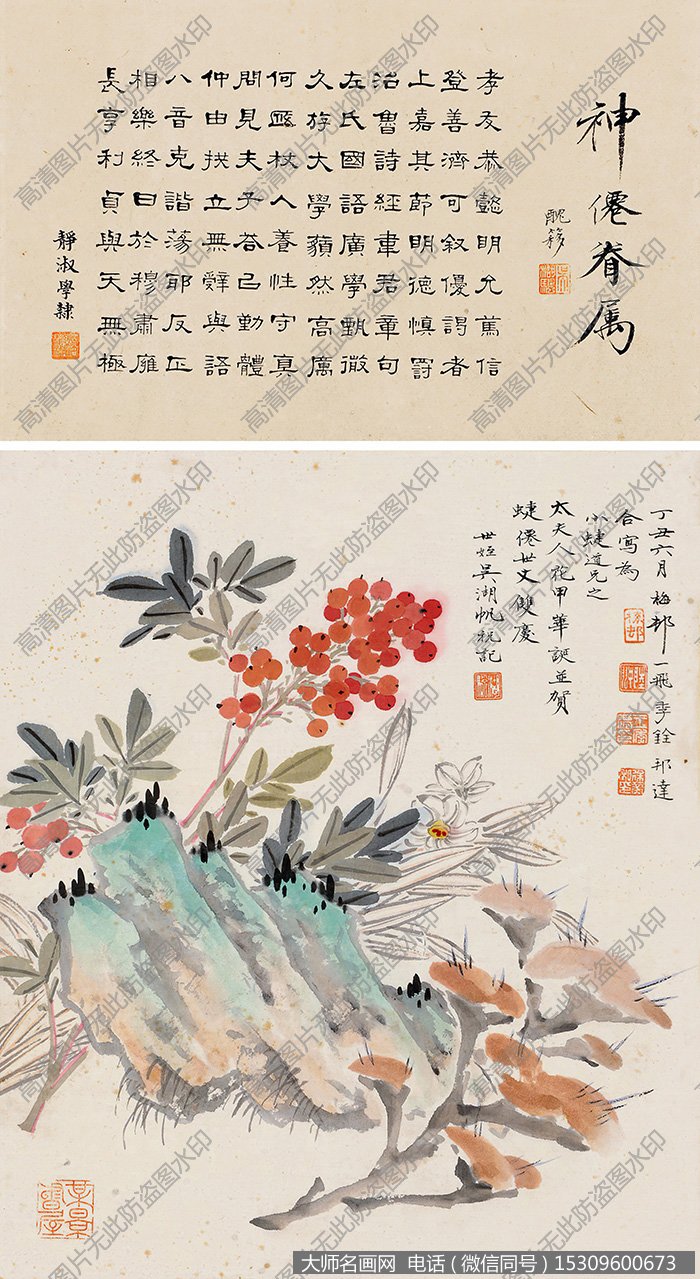 神僊眷属
醜簃
孝友恭懿明允篤信
登善濟可叙優謁者
上嘉其節明德慎罰
治魯詩經韋君章句
左氏國語廣學甄微
久斿大學藐然高厲
何杖人養性守真
問見夫子答已勤體
仲由拱立無辭與語
八音克諧蕩邪反正
相樂終日於穆肅雝
長享利貞與天無極
靜淑學隸
丁丑六月梅邨一飛季銓邦達
合寫為
小蜨道兄之
太夫人花甲華誕並賀
蜨僊世丈雙慶
世姪吳湖帆祝記
高清图片无此防盗图水印
大师名画网 电话（微信同号）15309600673